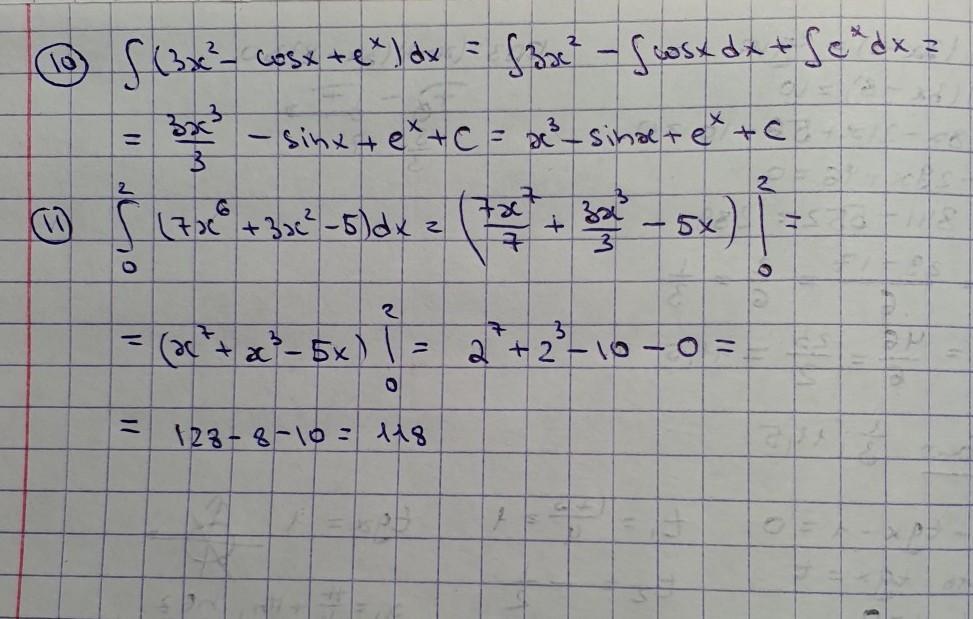 10 ∫(3x² - cosx + eˣ)dx = ∫3x² - ∫cosx dx + ∫eˣdx =
= 3x³/3 - sinx + eˣ + C = x³ - sinx + eˣ + C
11 ∫₀² (7x⁶ + 3x² - 5)dx = (7x⁷/7 + 3x³/3 - 5x) |₀² =
= (x⁷ + x³ - 5x) |₀² = 2⁷ + 2³ - 10 - 0 =
= 128 - 8 - 10 = 118